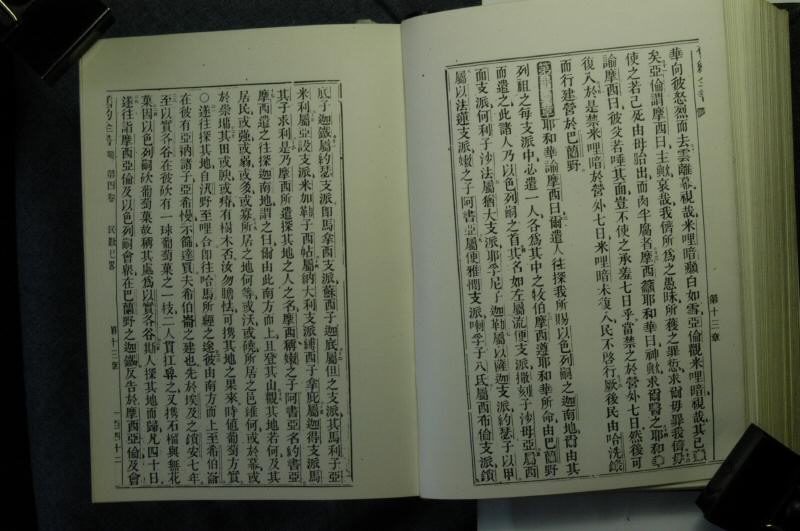 第十三章
華向彼怒烈而去雲離幕視哉米哩暗癩白如雪亞倫觀米哩暗視哉其已癩
矣亞倫謂摩西曰主歟哀哉我儕所為之愚昧所獲之罪懇求爾毋罪我儕
使之若已死由母胎出而肉半腐者摩西籲耶和華曰神歟求爾醫之耶和華
諭摩西曰彼父若唾其面豈不使之承羞七日乎當禁之於營外七日然後可
復入於是禁米哩暗於營外七日米哩暗未復入民不啓行厥後民由哈洗錄
而行建營於巴蘭野
耶和華諭摩西曰爾遣人往探我所賜以色列嗣之迦南地爾由其
列祖之每支派中必遣一人各為其中之牧伯摩西遵耶和華所命由巴蘭野
而遣之此諸人乃以色列嗣之首其名如左屬流便支派撒刻子沙母亞屬西
面支派何利子沙法屬猶大支派耶孚尼子迦勒屬以薩迦支派約瑟子以甲
屬以法蓮支派嫩之子阿書亞屬便雅憫支派喇孚子八氐屬西布倫支派鎖
底子迦鐵屬約瑟支派即馬拿西支派蘇西子迦底屬但之支派其馬利子亞
米利屬亞設支派米加勒子西帖屬納大利支派縛西子拿庇屬迦得支派馬
其子求利是乃摩西所遣探其地之人之名摩西稱嫩之子阿書亞名約書亞
摩西遣之往探迦南地謂之曰爾由此南方而上且登其山觀其地若何及其
居民或強或弱或多或寡所居之地何等或沃或磽所居之邑維何或於幕或
於崇墉其田或腴或瘠有樹木否汝勿膽怯可携其地之果來時値葡萄方質
○遂往探其地自汎野至哩合即往哈馬所經之途彼由南方而上至希伯崙
在彼有亞衲諸子亞希幔示篩達買夫希伯崙之建也先於埃及之鎖安七年
至以實各谷在彼砍有一球葡萄菓之一枝二人貫杠舁之又携石榴與無花
菓因以色列嗣砍葡萄菓故稱其處為以實各谷斯人探其地而歸凡四十日
遂往詣摩西亞倫及以色列嗣會衆在巴蘭野之迦鐵反告於摩西亞倫及會
舊約全書 第四卷 民數紀畧 第十三章 一百四十二